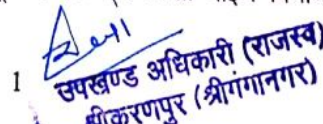 1
उपखण्ड अधिकारी (राजस्व)
श्रीकरणपुर (श्रीगंगानगर)